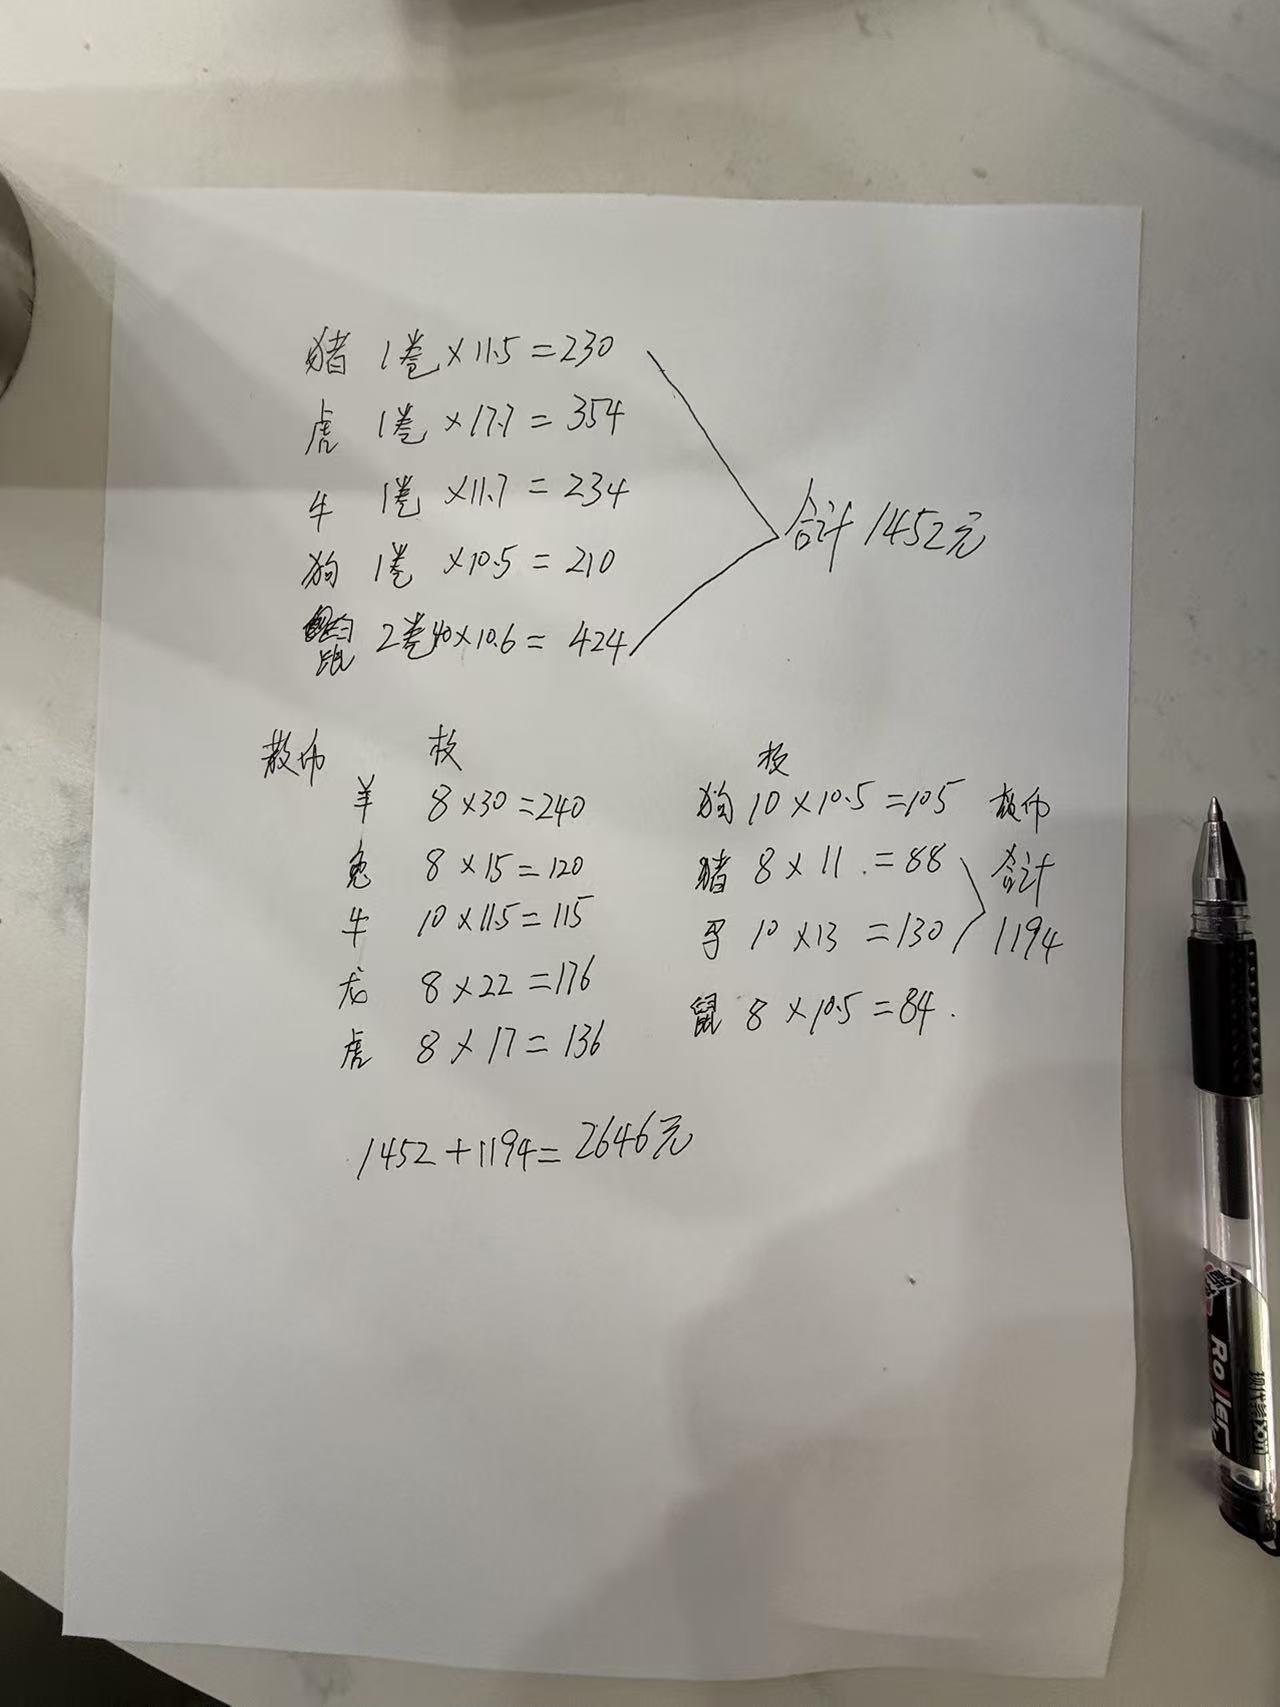 猪 1卷×11.5=230
虎 1卷×17.7=354
牛 1卷×11.7=234
狗 1卷×10.5=210
鼠 2卷40×10.6=424
合计1452元
散币 枚
羊 8×30=240
兔 8×15=120
牛 10×11.5=115
龙 8×22=176
虎 8×17=136
枚
狗 10×10.5=105
猪 8×11.=88
10×13=130
鼠 8×10.5=84.
散币
合计
1194
1452+1194=2646元
Roller